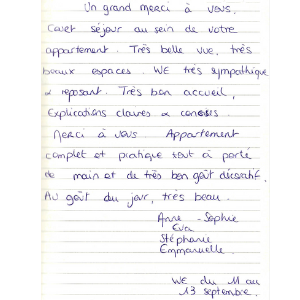 Un grand merci à vous,
Court séjour au sein de votre
appartement. Très belle vue, très
beaux espaces. WE très sympathique
& reposant. Très bon accueil,
Explications claires & concises.
Merci à vous. Appartement
complet et pratique tout à porté
de main et de très bon goût décoratif.
Au goût du jour, très beau.
Anne-Sophie
Eva
Stéphanie
Emmanuelle.
WE du 11 au
13 septembre.